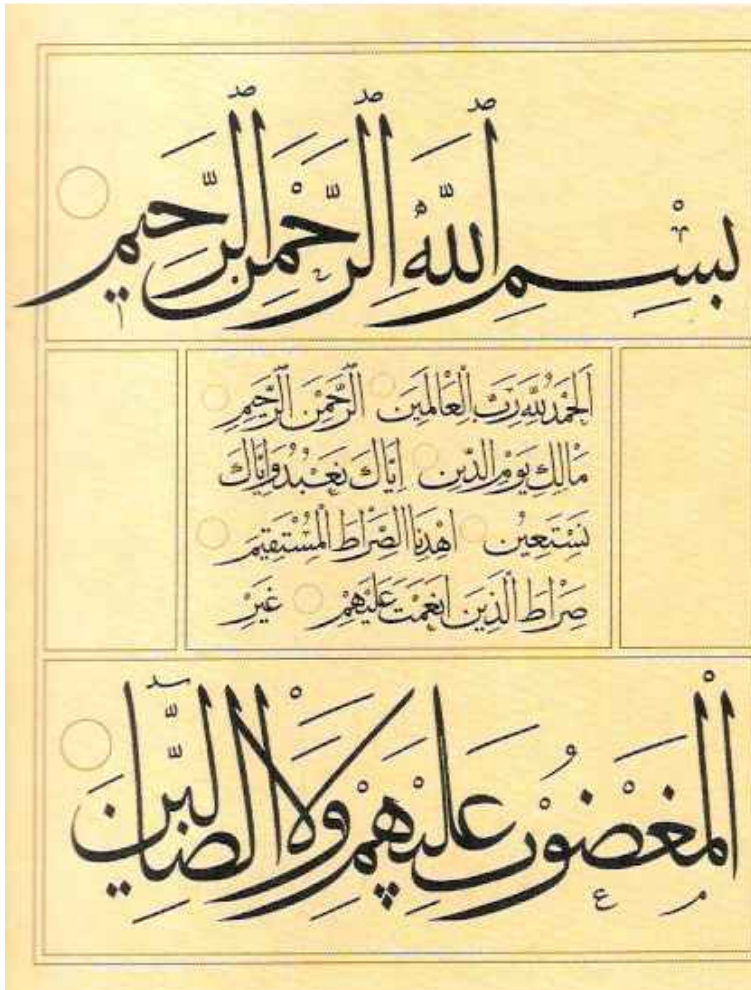 بِسْمِ ٱللَّهِ ٱلرَّحْمٰنِ ٱلرَّحِيمِ
اَلْحَمْدُ لِلّٰهِ رَبِّ الْعَالَمِينَ الرَّحْمٰنِ الرَّحِيمِ
مَالِكِ يَوْمِ الدِّينِ اِيَّاكَ نَعْبُدُ وَاِيَّاكَ
نَسْتَعِينُ اهْدِنَا الصِّرَاطَ الْمُسْتَقِيمَ
صِرَاطَ الَّذِينَ اَنْعَمْتَ عَلَيْهِمْ غَيْرِ
الْمَغْضُوبِ عَلَيْهِمْ وَلَا الضَّالِّينَ